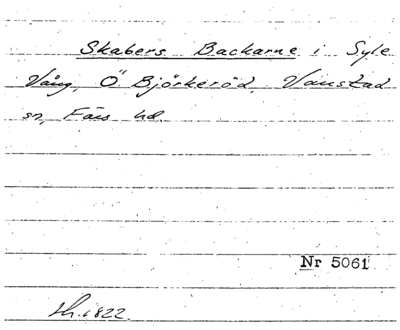 Skabers Backarne i Syle
Vång, Ö. Björkeröd, Vanstad
sn, Färs hd.
Nr 5061
Sk. 1822.